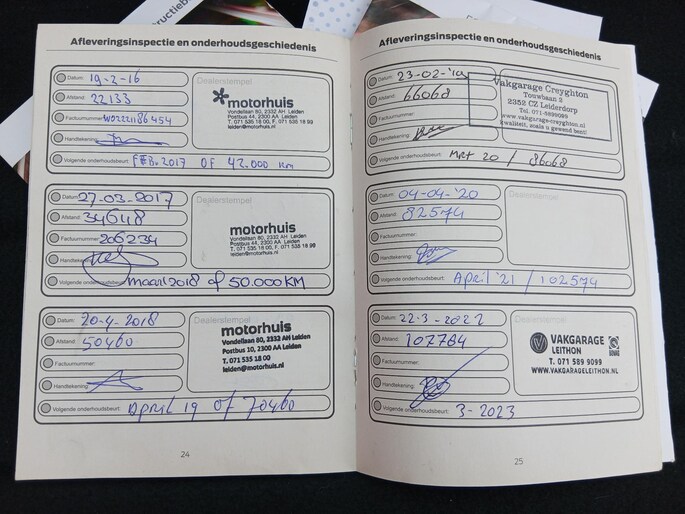 Afleveringsinspectie en onderhoudsgeschiedenis
Datum: 19-2-16
Afstand: 22133
Factuurnummer: W02221186454
Handtekening:
Volgende onderhoudsbeurt: FEB. 2017 OF 42.000 km
Dealerstempel
motorhuis
Vondellaan 80, 2332 AH Leiden
Postbus 44, 2300 AA Leiden
T. 071 535 18 00, F. 071 535 18 99
leiden@motorhuis.nl
Datum: 27-03-2017
Afstand: 34648
Factuurnummer: 206234
Handtekening:
Volgende onderhoudsbeurt: maart 2018 of 50.000KM
Dealerstempel
motorhuis
Vondellaan 80, 2332 AH Leiden
Postbus 44, 2300 AA Leiden
T. 071 535 18 00, F. 071 535 18 99
leiden@motorhuis.nl
Datum: 20-4-2018
Afstand: 50460
Factuurnummer:
Handtekening:
Volgende onderhoudsbeurt: April 19 OF 70460
Dealerstempel
motorhuis
Vondellaan 80, 2332 AH Leiden
Postbus 10, 2300 AA Leiden
T. 071 535 18 00
leiden@motorhuis.nl
24
Afleveringsinspectie en onderhoudsgeschiedenis
Datum: 23-02-'19
Afstand: 66068
Factuurnummer:
Handtekening:
Volgende onderhoudsbeurt: MRT 20 / 86068
Vakgarage Creyghton
Touwbaan 2
2352 CZ Leiderdorp
Tel. 071-5899099
www.vakgarage-creyghton.nl
kwaliteit, zoals u gewend bent!
Datum: 04-04-'20
Afstand: 82574
Factuurnummer:
Handtekening:
Volgende onderhoudsbeurt: April '21 / 102574
Dealerstempel
Datum: 22-3-2022
Afstand: 107784
Factuurnummer:
Handtekening:
Volgende onderhoudsbeurt: 3-2023
Dealerstempel
VAKGARAGE
LEITHON
BOVAG
T. 071 589 9099
WWW.VAKGARAGELEITHON.NL
25